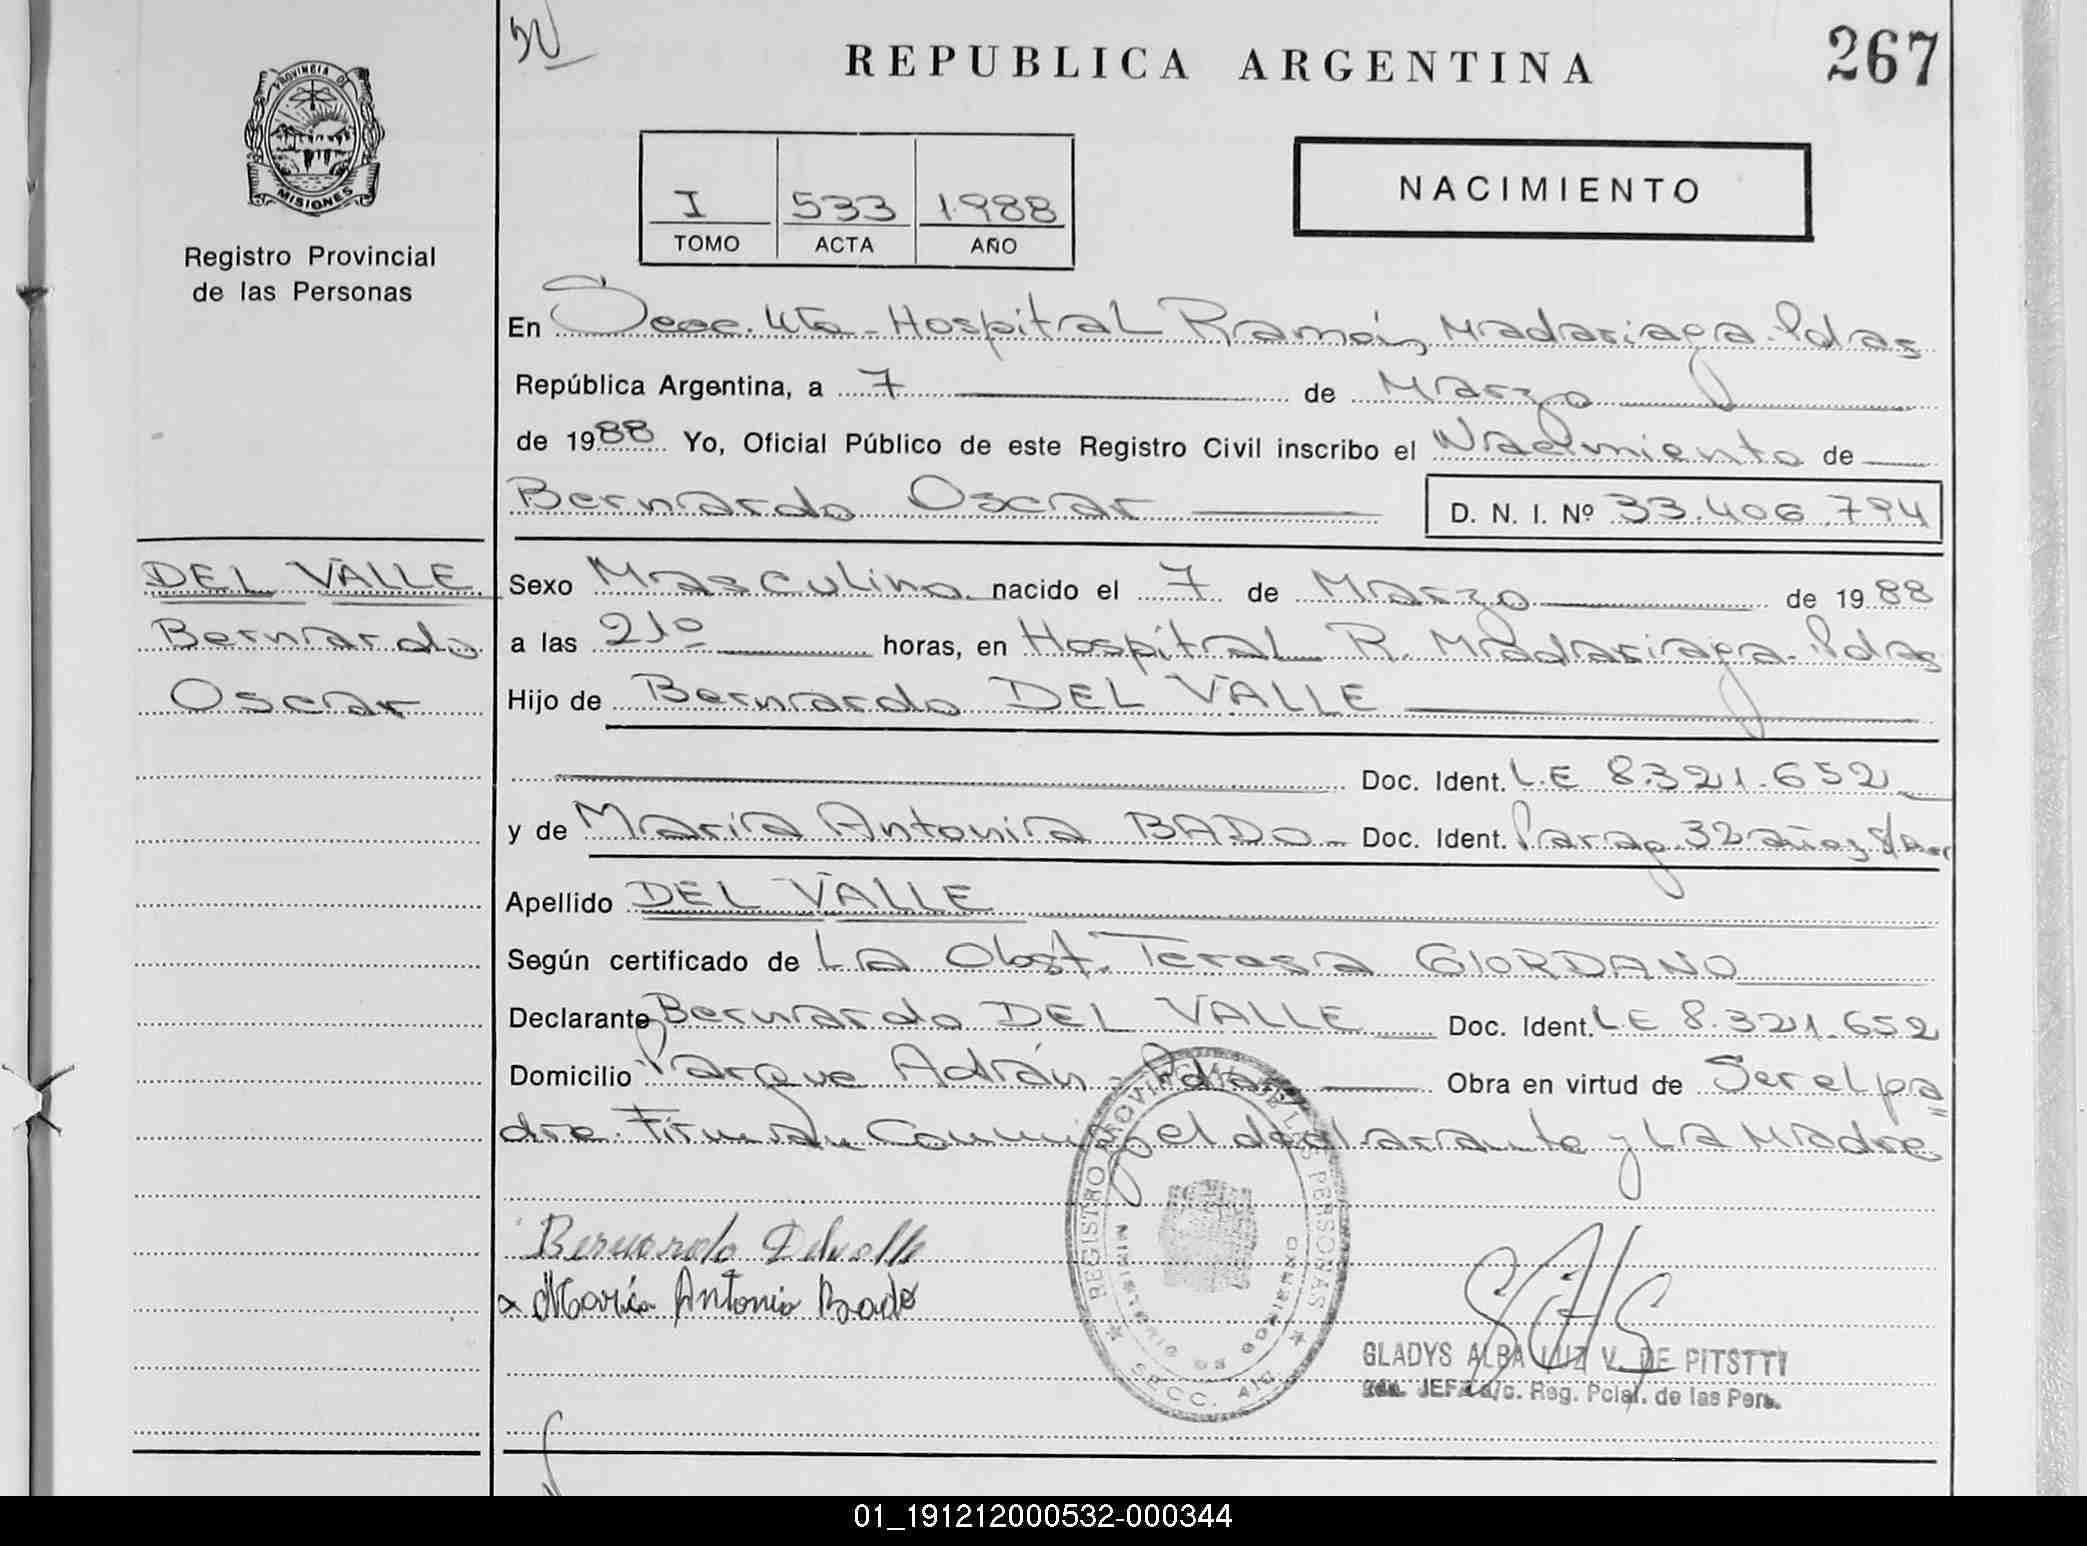 REPUBLICA ARGENTINA
267
PROVINCIA DE
MISIONES
Registro Provincial
de las Personas
I 533 1988
TOMO ACTA AÑO
NACIMIENTO
En Secc. 4ta - Hospital Ramón Madariaga. Pdas
República Argentina, a 7 de Marzo
de 1988 Yo, Oficial Público de este Registro Civil inscribo el Nacimiento de
Bernardo Oscar D. N. I. Nº 33.406.794
DEL VALLE
Bernardo
Oscar
Sexo Masculino nacido el 7 de Marzo de 1988
a las 21º horas, en Hospital R. Madariaga. Pdas
Hijo de Bernardo DEL VALLE
Doc. Ident. L.E 8.321.652
y de María Antonia BADO Doc. Ident. Parag 32 años
Apellido DEL VALLE
Según certificado de La Obst. Teresa GIORDANO
Declarante Bernardo DEL VALLE Doc. Ident. L.E 8.321.652
Domicilio Parque Adrián - Pdas Obra en virtud de Ser el pa
dre. Firman Conmigo el declarante y La Madre
Bernardo Delvalle
María Antonia Bado
REGISTRO PROVINCIAL DE LAS PERSONAS
MINISTERIO DE GOBIERNO
GLADYS ALBA LUZ V. DE PITSTTI
JEFA a/c. Reg. Pcial. de las Pers.
01_191212000532-000344